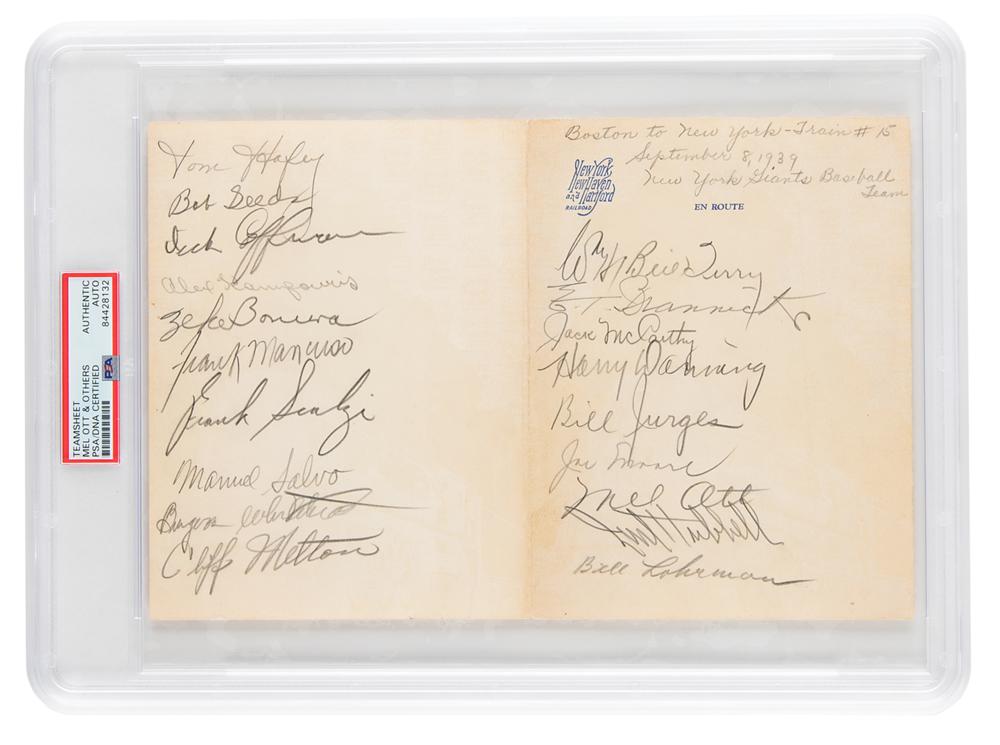 TEAMSHEET
MEL OTT & OTHERS
PSA/DNA CERTIFIED
AUTHENTIC
AUTO
84428132
PSA
Tom Hafey
Bob Seeds
Dick Coffman
Alex Kampouris
Zeke Bonura
Frank Mancuso
Frank Scalzi
Manuel Salvo
Burgess Whitehead
Cliff Melton
Boston to New York - Train # 15
September 8, 1939
New York Giants Baseball
Team
New York
New Haven
and Hartford
RAILROAD
EN ROUTE
Wm H Bill Terry
E. T. Brannick
Jack McCarthy
Harry Danning
Bill Jurges
Joe Moore
Mel Ott
Carl Hubbell
Bill Lohrman